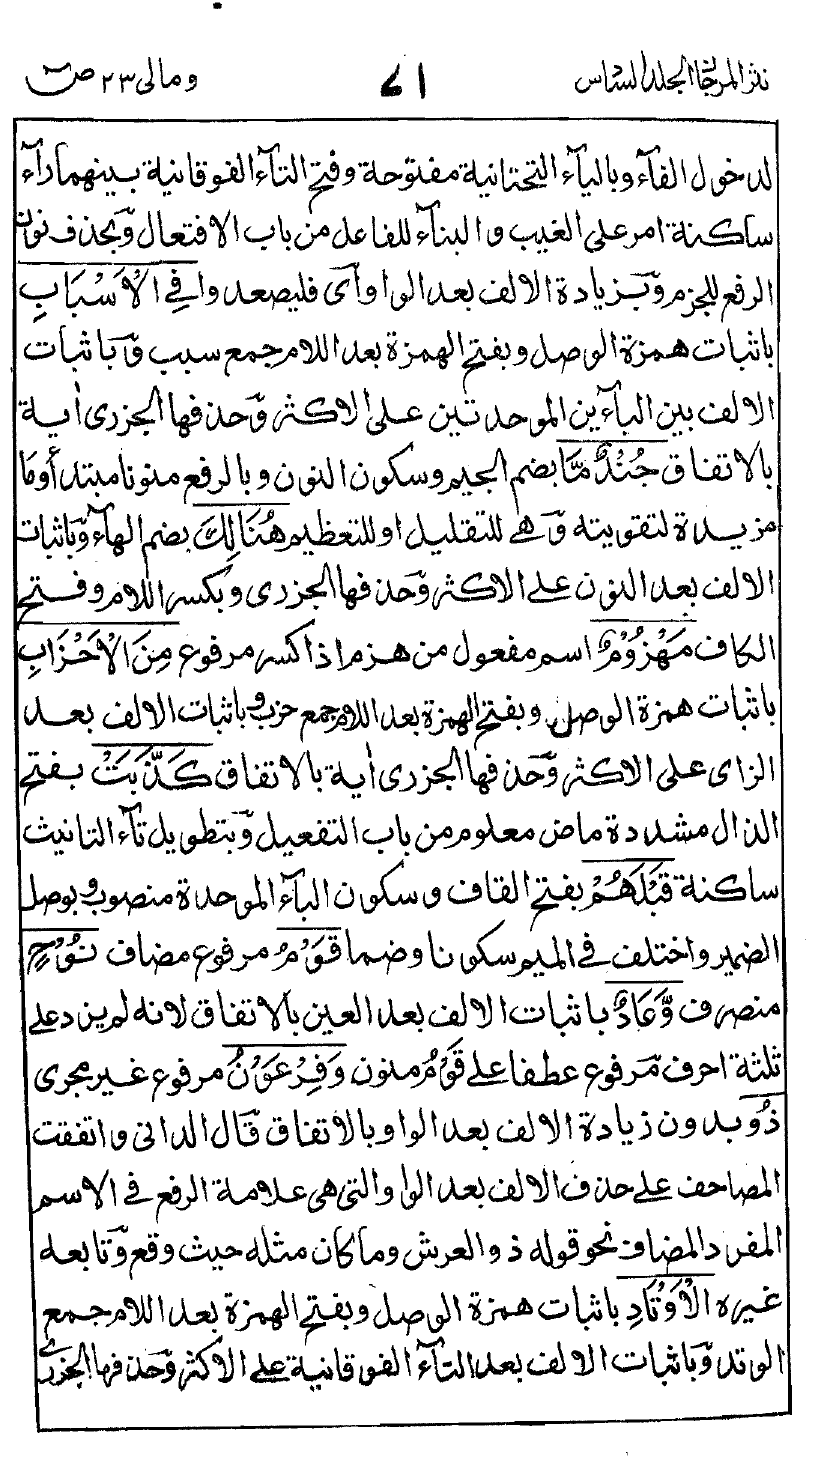 نثر المرجان الجلد السادس ٧١ ومالى ٢٣ ص
لدخول الفآء وبالیآء التحتانیة مفتوحة وفتح التآء الفوقانیة بینهما رآء
ساكنة امر علی الغیب والبنآء للفاعل من باب الافتعال وّبحذف نون
الرفع للجزم وّبزیادة الالف بعد الواو اٰی فلیصعدوا فِی الْاَسْبَابِ
باثبات همزة الوصل وبفتح الهمزة بعد اللام جمع سبب وّباثبات
الالف بین البآءین الموحدتین علی الاكثر وّحذفها الجزری اٰیة
بالاتفاق جُنْدٌ مَّا بضم الجیم وسكون النون وبالرفع منونا مبتدأ وما
مزیدة لتقویته وّهی للتقلیل او للتعظیم هُنَالِكَ بضم الهآء وّباثبات
الالف بعد النون علی الاكثر وّحذفها الجزری وبكسر اللام وفتح
الكاف مَهْزُوْمٌ اسم مفعول من هزم اذا كسر مرفوع مِنَ الْاَحْزَابِ
باثبات همزة الوصل وبفتح الهمزة بعد اللام جمع حزب وباثبات الالف بعد
الزای علی الاكثر وّحذفها الجزری اٰیة بالاتفاق كَذَّبَتْ بفتح
الذال مشددة ماض معلوم من باب التفعیل وّبتطویل تآء التانیث
ساكنة قَبْلَهُمْ بفتح القاف وسكون البآء الموحدة منصوب وبوصل
الضمیر واختلف فی المیم سكونا وضما قَوْمُ مرفوع مضاف نُوْحٍ
منصرف وَّعَادٌ باثبات الالف بعد العین بالاتفاق لانه لم یزد علی
ثلثة احرف مّرفوع عطفا علی قَوْمُ منون وَفِرْعَوْنُ مرفوع غیر مجری
ذُو بدون زیادة الالف بعد الواو بالاتفاق قال الدانی واتفقت
المصاحف علی حذف الالف بعد الواو التی هی علامة الرفع فی الاسم
المفرد المضاف نحو قوله ذو العرش وما كان مثله حیث وقع وّتابعه
غیره الْاَوْتَادِ باثبات همزة الوصل وبفتح الهمزة بعد اللام جمع
الوتد وّباثبات الالف بعد التآء الفوقانیة علی الاكثر وّحذفها الجزری